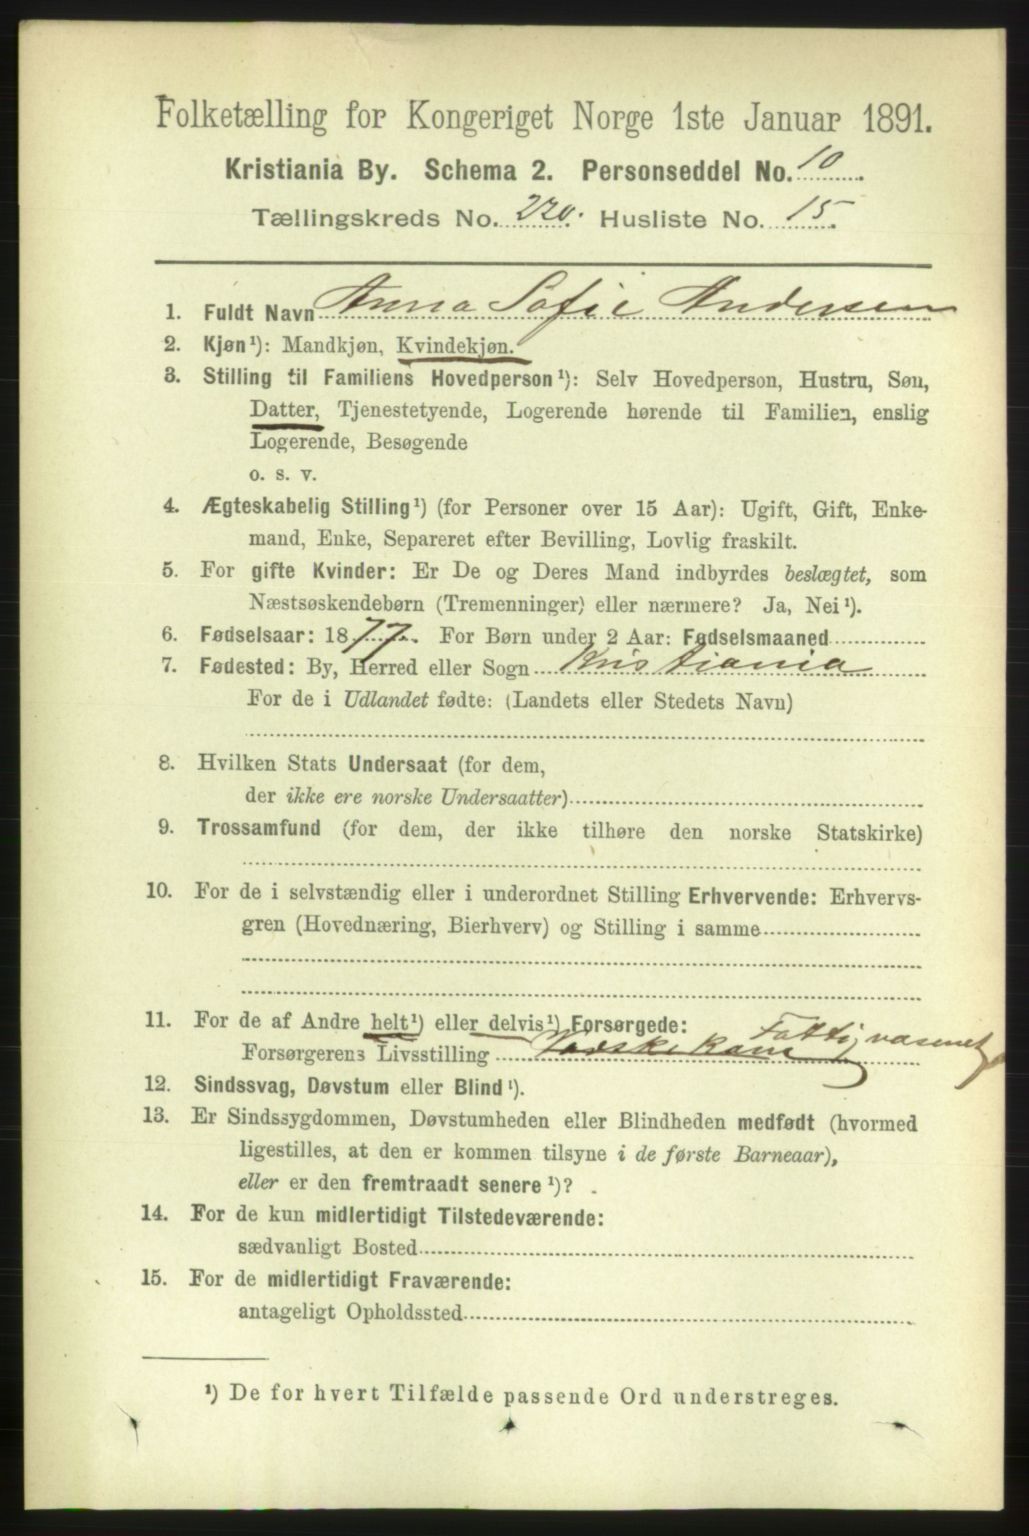 Folketælling for Kongeriget Norge 1ste Januar 1891.
Kristiania By. Schema 2. Personseddel No. 10.
Tællingskreds No. 220. Husliste No. 15.
1. Fuldt Navn Anna Sofie Andersen
2. Kjøn¹): Mandkjøn, Kvindekjøn.
3. Stilling til Familiens Hovedperson¹): Selv Hovedperson, Hustru, Søn,
Datter, Tjenestetyende, Logerende hørende til Familien, enslig
Logerende, Besøgende
o. s. v.
4. Ægteskabelig Stilling¹) (for Personer over 15 Aar): Ugift, Gift, Enke-
mand, Enke, Separeret efter Bevilling, Lovlig fraskilt.
5. For gifte Kvinder: Er De og Deres Mand indbyrdes beslægtet, som
Næstsøskendebørn (Tremenninger) eller nærmere? Ja, Nei¹).
6. Fødselsaar: 1877. For Børn under 2 Aar: Fødselsmaaned
7. Fødested: By, Herred eller Sogn Kristiania
For de i Udlandet fødte: (Landets eller Stedets Navn)
8. Hvilken Stats Undersaat (for dem,
der ikke ere norske Undersaatter)
9. Trossamfund (for dem, der ikke tilhøre den norske Statskirke)
10. For de i selvstændig eller i underordnet Stilling Erhvervende: Erhvervs-
gren (Hovednæring, Bierhverv) og Stilling i samme
11. For de af Andre helt¹) eller delvis¹) Forsørgede:
Forsørgerens Livsstilling Vadskekone Fattigvæsenet
12. Sindssvag, Døvstum eller Blind¹).
13. Er Sindssygdommen, Døvstumheden eller Blindheden medfødt (hvormed
ligestilles, at den er kommen tilsyne i de første Barneaar),
eller er den fremtraadt senere¹)?
14. For de kun midlertidigt Tilstedeværende:
sædvanligt Bosted
15. For de midlertidigt Fraværende:
antageligt Opholdssted
¹) De for hvert Tilfælde passende Ord understreges.